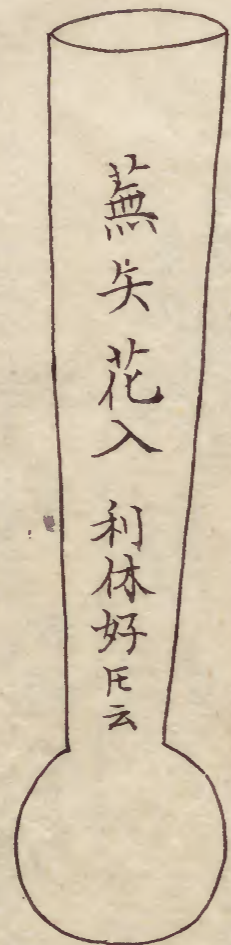 蕪矢花入 利休好𪜈云